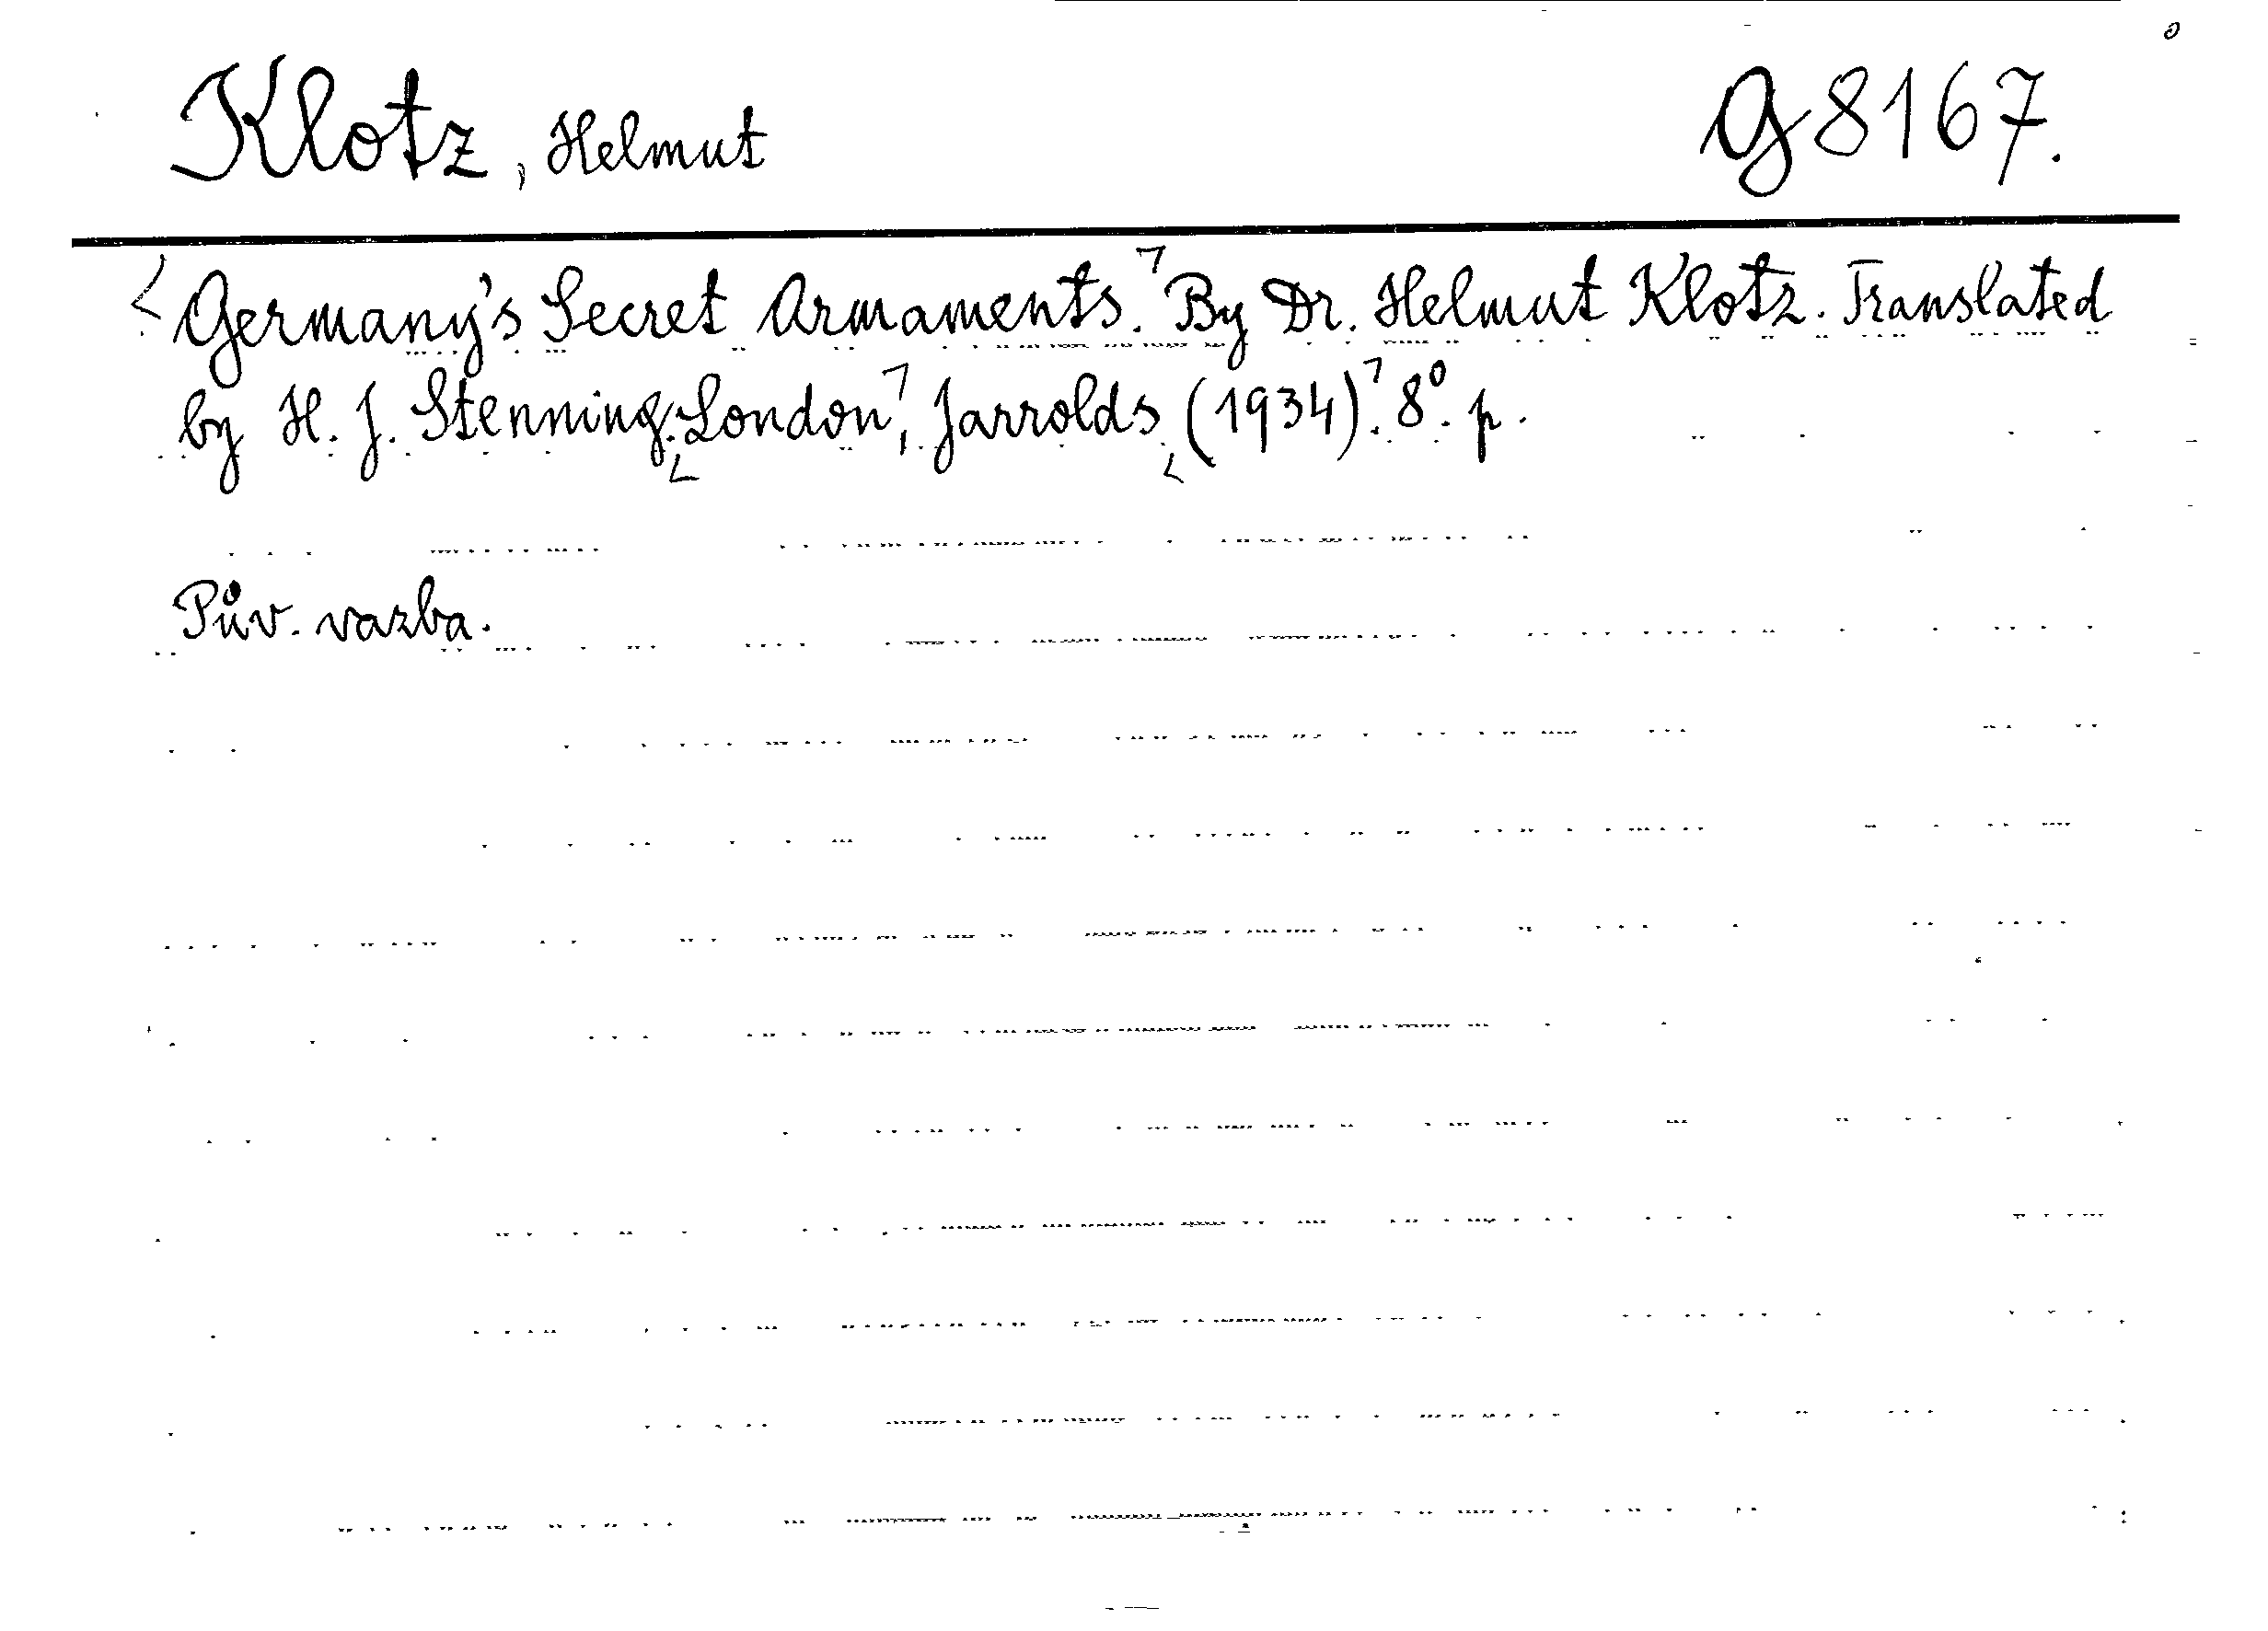 Klotz, Helmut g 8167.
Germany's Secret Armaments. By Dr. Helmut Klotz. Translated
by H. J. Stenning. London, Jarrolds (1934). 8°. p.
Pův. vazba.